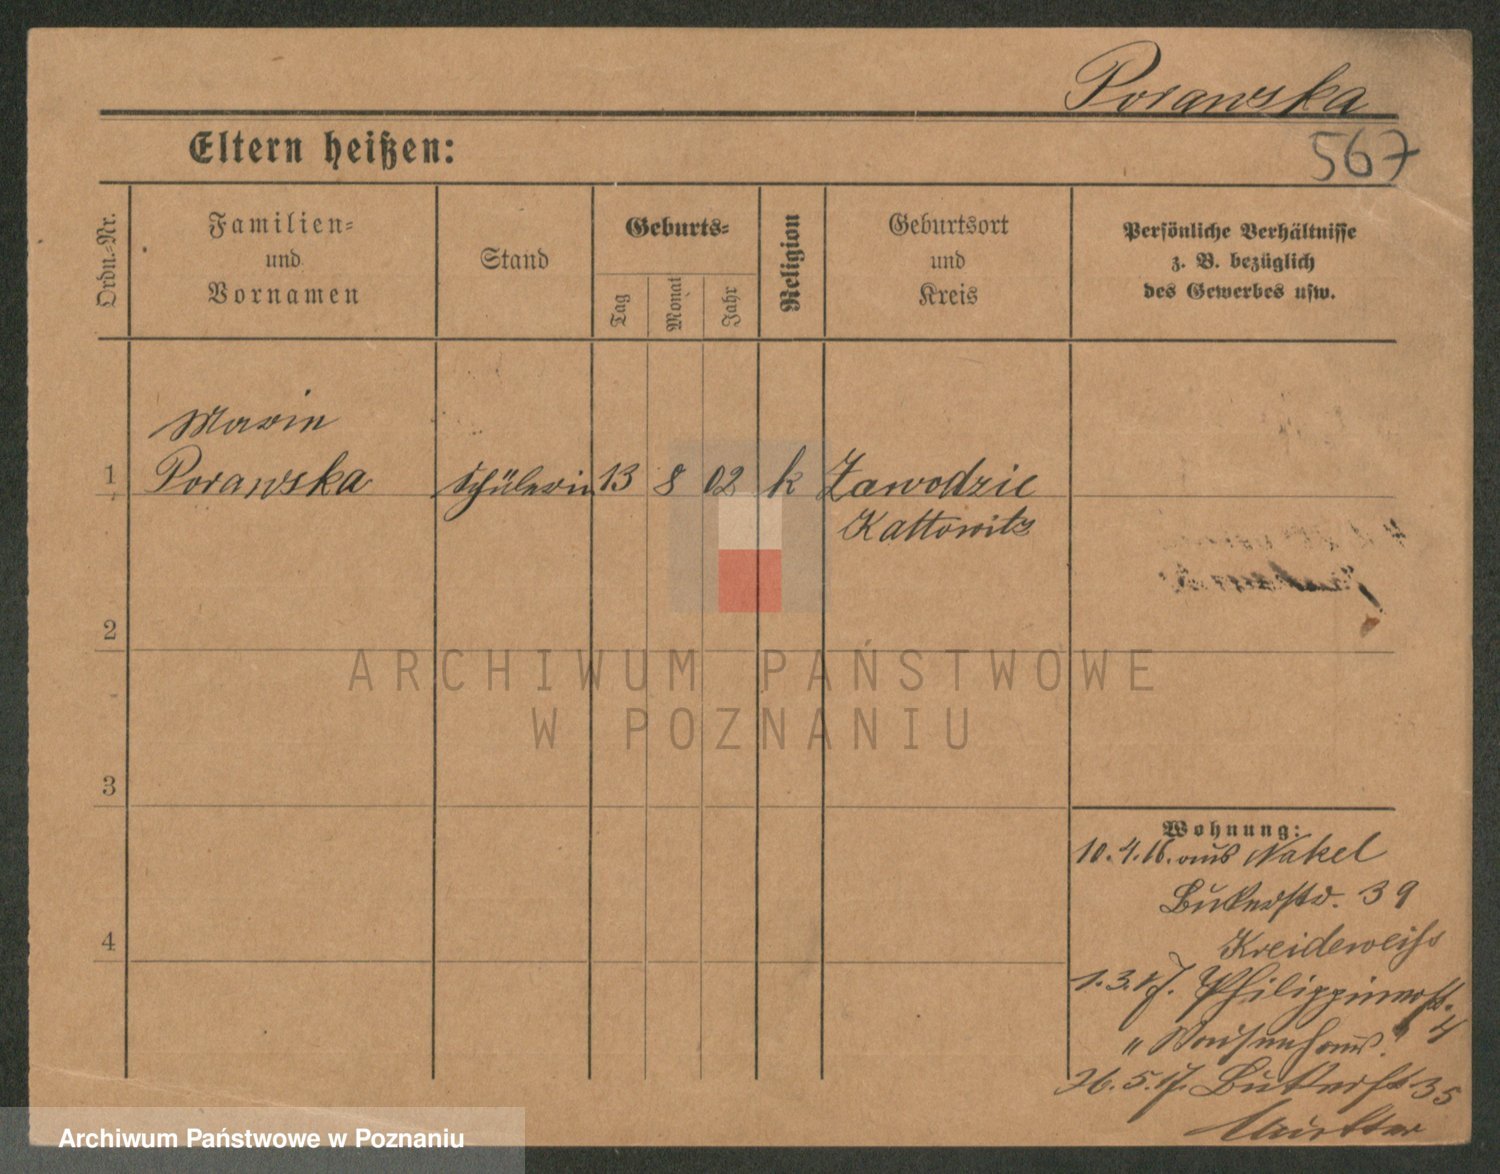 Porawska
567
Eltern heißen:
Ordn.-Nr.
Familien-
und
Vornamen
Stand
Geburts-
Tag
Monat
Jahr
Religion
Geburtsort
und
Kreis
Persönliche Verhältnisse
z. B. bezüglich
des Gewerbes usw.
Marie
1 Porawska Schülerin 13 8 02 k Zawodzie
Kattowitz
2
ARCHIWUM PAŃSTWOWE
W POZNANIU
3
Wohnung:
10.4.16. aus Nakel
Bukerstr. 39
4
Kreideweiss
1.3.17. Philippinerstr.
4
„Waisenhaus."
26.5.17. Bukerstr 35
Mutter
Archiwum Państwowe w Poznaniu